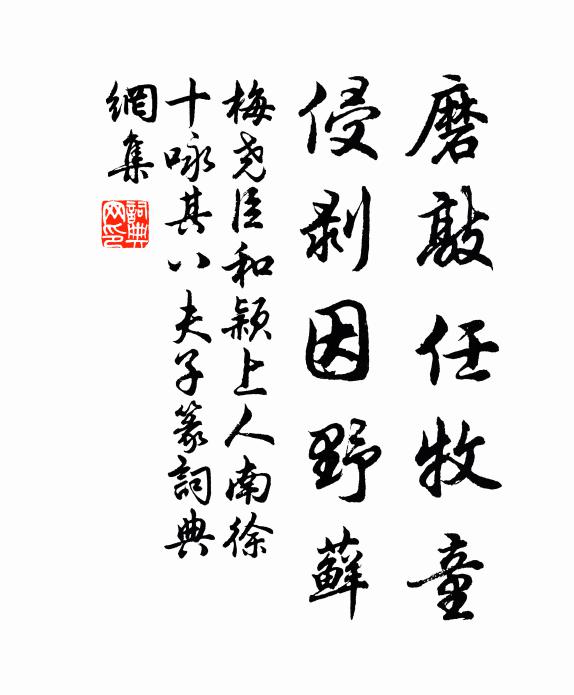 磨敲任牧童
侵剥因野蘚
梅尧臣和颖上人南徐
十咏其八夫子篆詞典
網集
詞典
网印